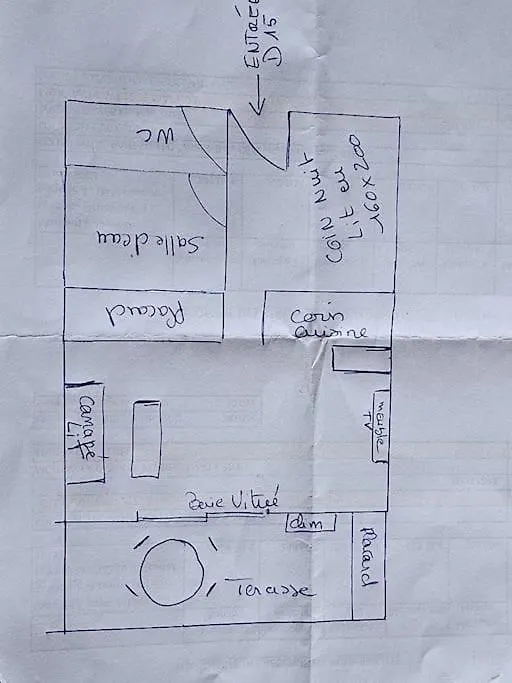 ENTRÉE
D15
WC
COIN Nuit
Lit en
160 x 200
Salle d'eau
Placard
Coin
cuisine
Canapé
Lit
meuble
TV
Baie Vitrée
Placard
Terasse